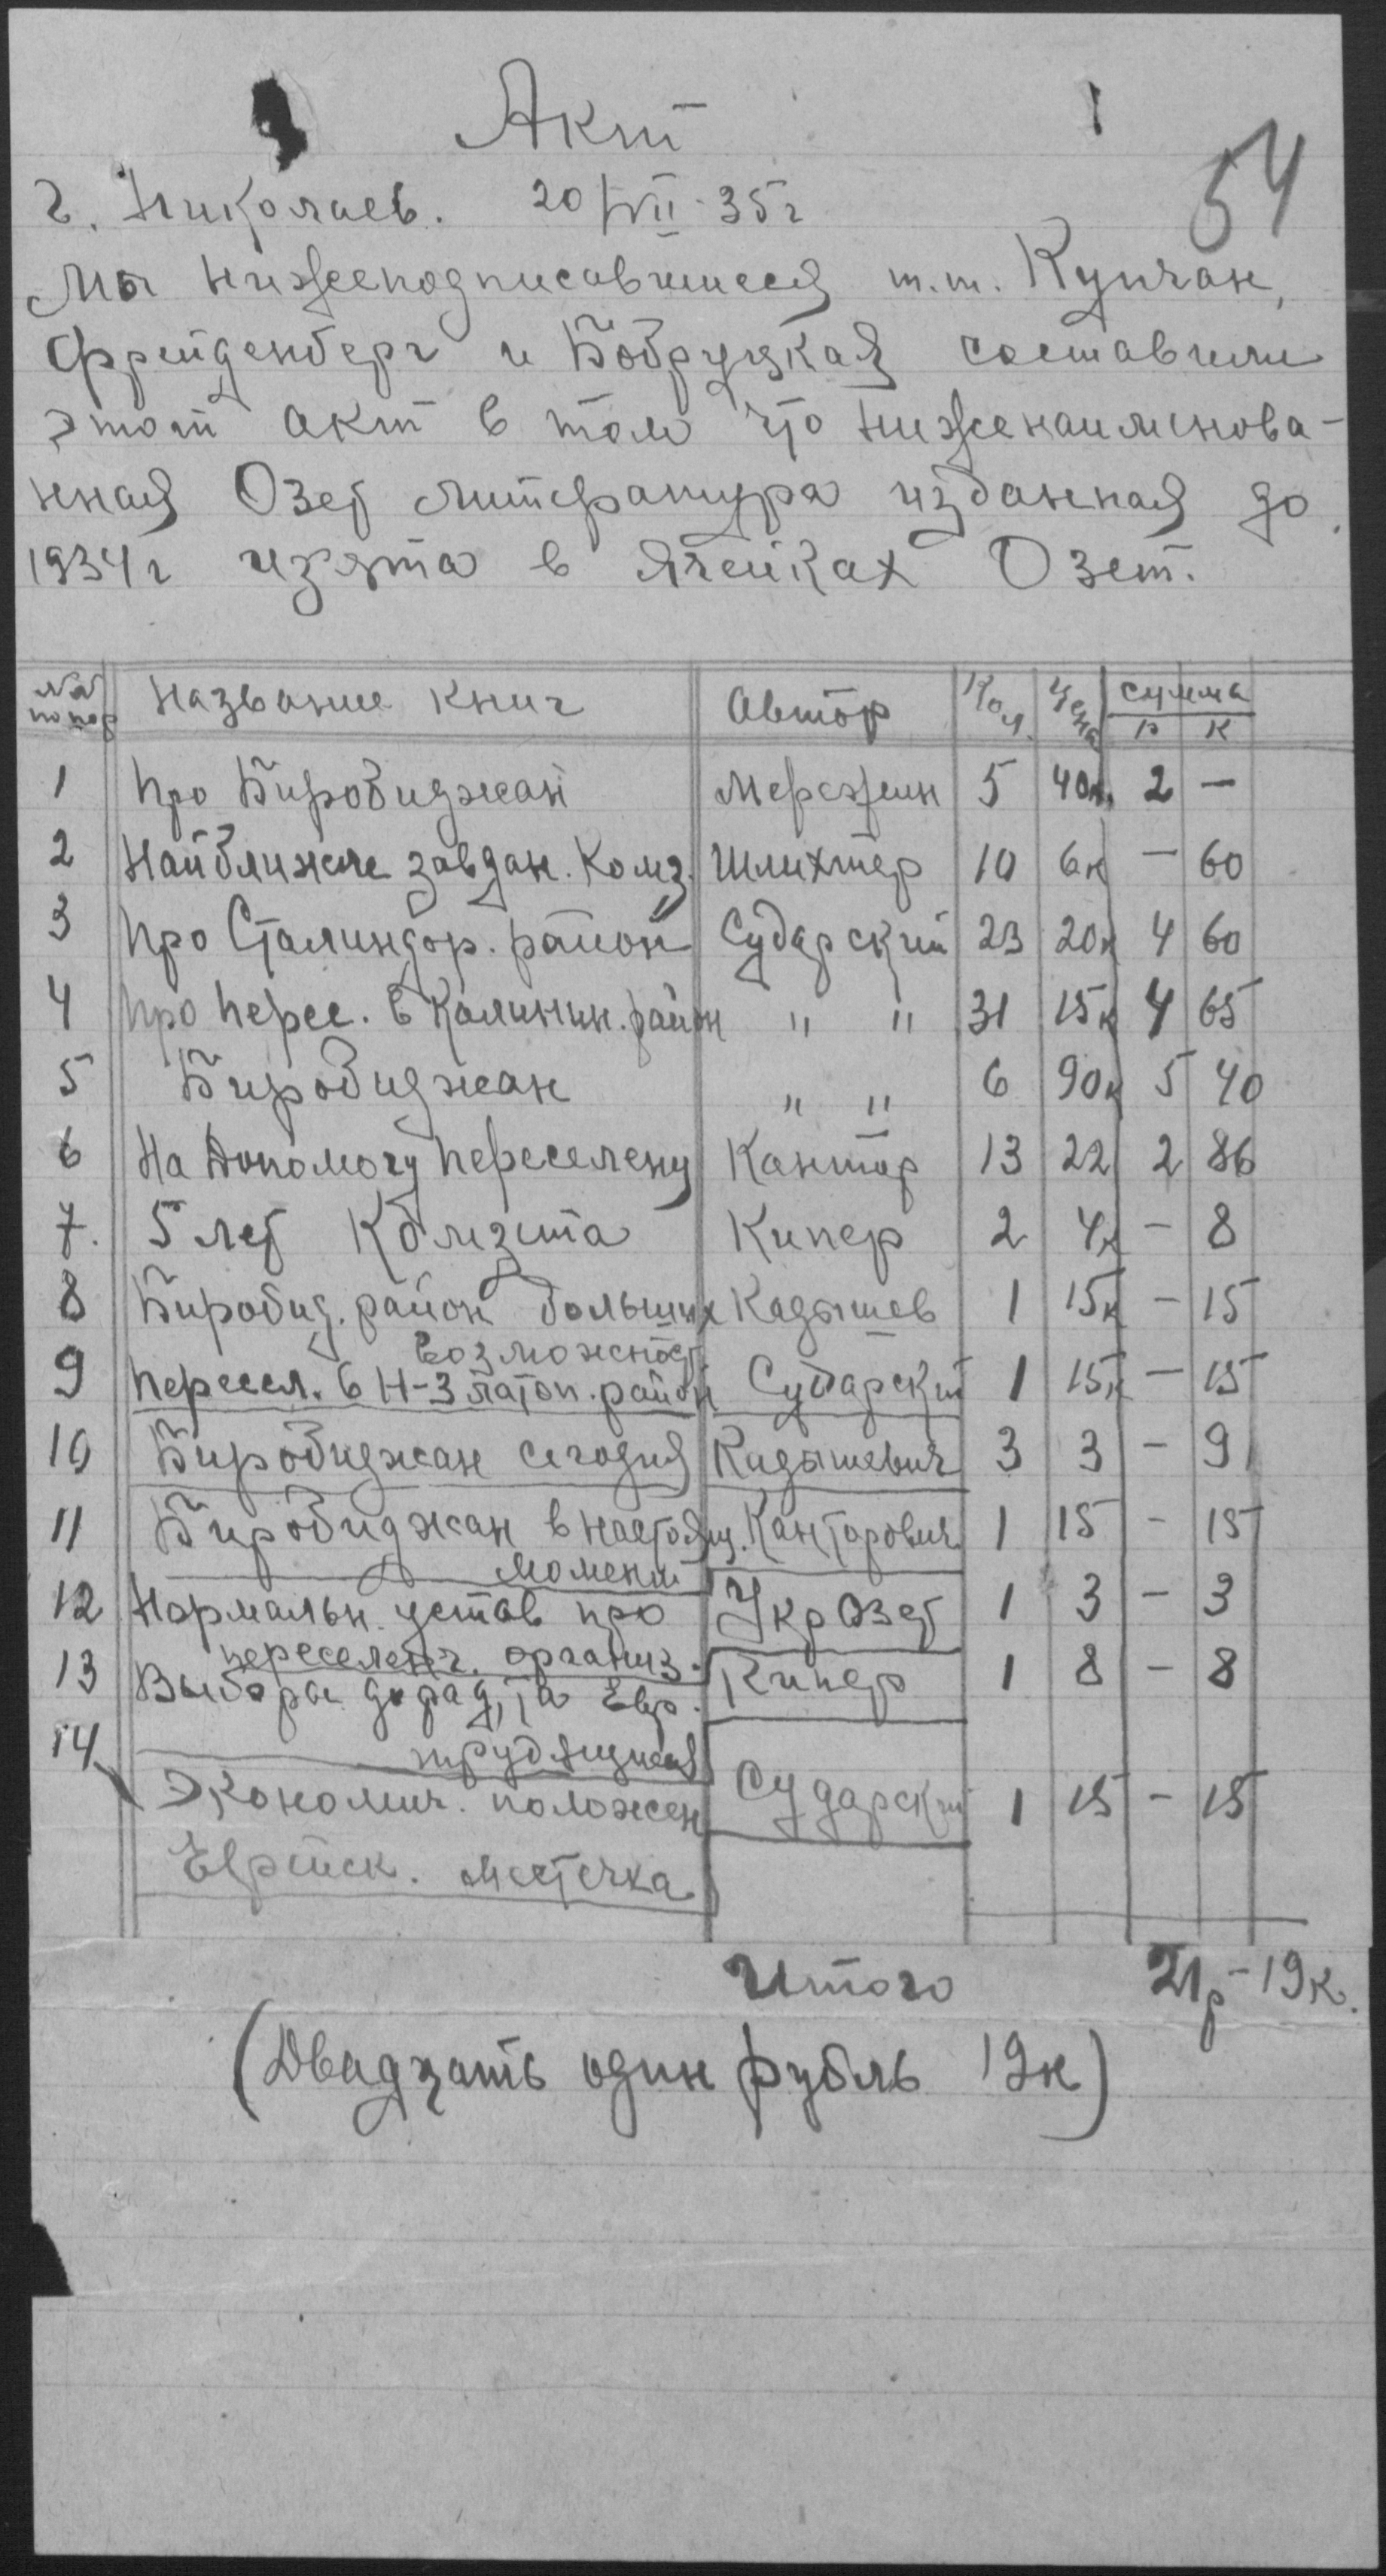 Акт
54
г. Николаев. 20/VII-35г
Мы нижеподписавшиеся т.т. Купчан,
Фрейденберг и Бобруцкая составили
этот акт в том что ниженаименова-
нная Озет литература изданная до
1934г изъята в ячейках Озет.
№№ по пор Название книг Автор Кол. Цена сумма р к
1 Про Биробиджан Мережин 5 40к. 2 —
2 Найближче завдан. Комз. Шлихтер 10 6к — 60
3 Про Сталиндор. район Сударский 23 20к 4 60
4 Про Перес. в Калинин. район " " 31 15к 4 65
5 Биробиджан " " 6 90к 5 40
6 На Допомогу Переселену Кантор 13 22 2 86
7. 5 лет Комзета Кипер 2 4к — 8
8 Биробид. район больших Кадышев 1 15к — 15
возможност
9 Пересел. в Н-Златоп. район Сударский 1 15к — 15
10 Биробиджан сегодня Кадышевич 3 3 — 9
11 Биробиджан в настоящ. Канторович 1 15 - 15
момент
12 Нормальн. устав про УкрОзет 1 3 — 3
переселенч. организ.
13 Выборы до рад, та Евр. Кипер 1 8 — 8
трудящиеся
14 Экономич. положен Сударский 1 15 — 15
Еврейск. местечка
Итого 21р-19к.
(Двадцать один рубль 19к)